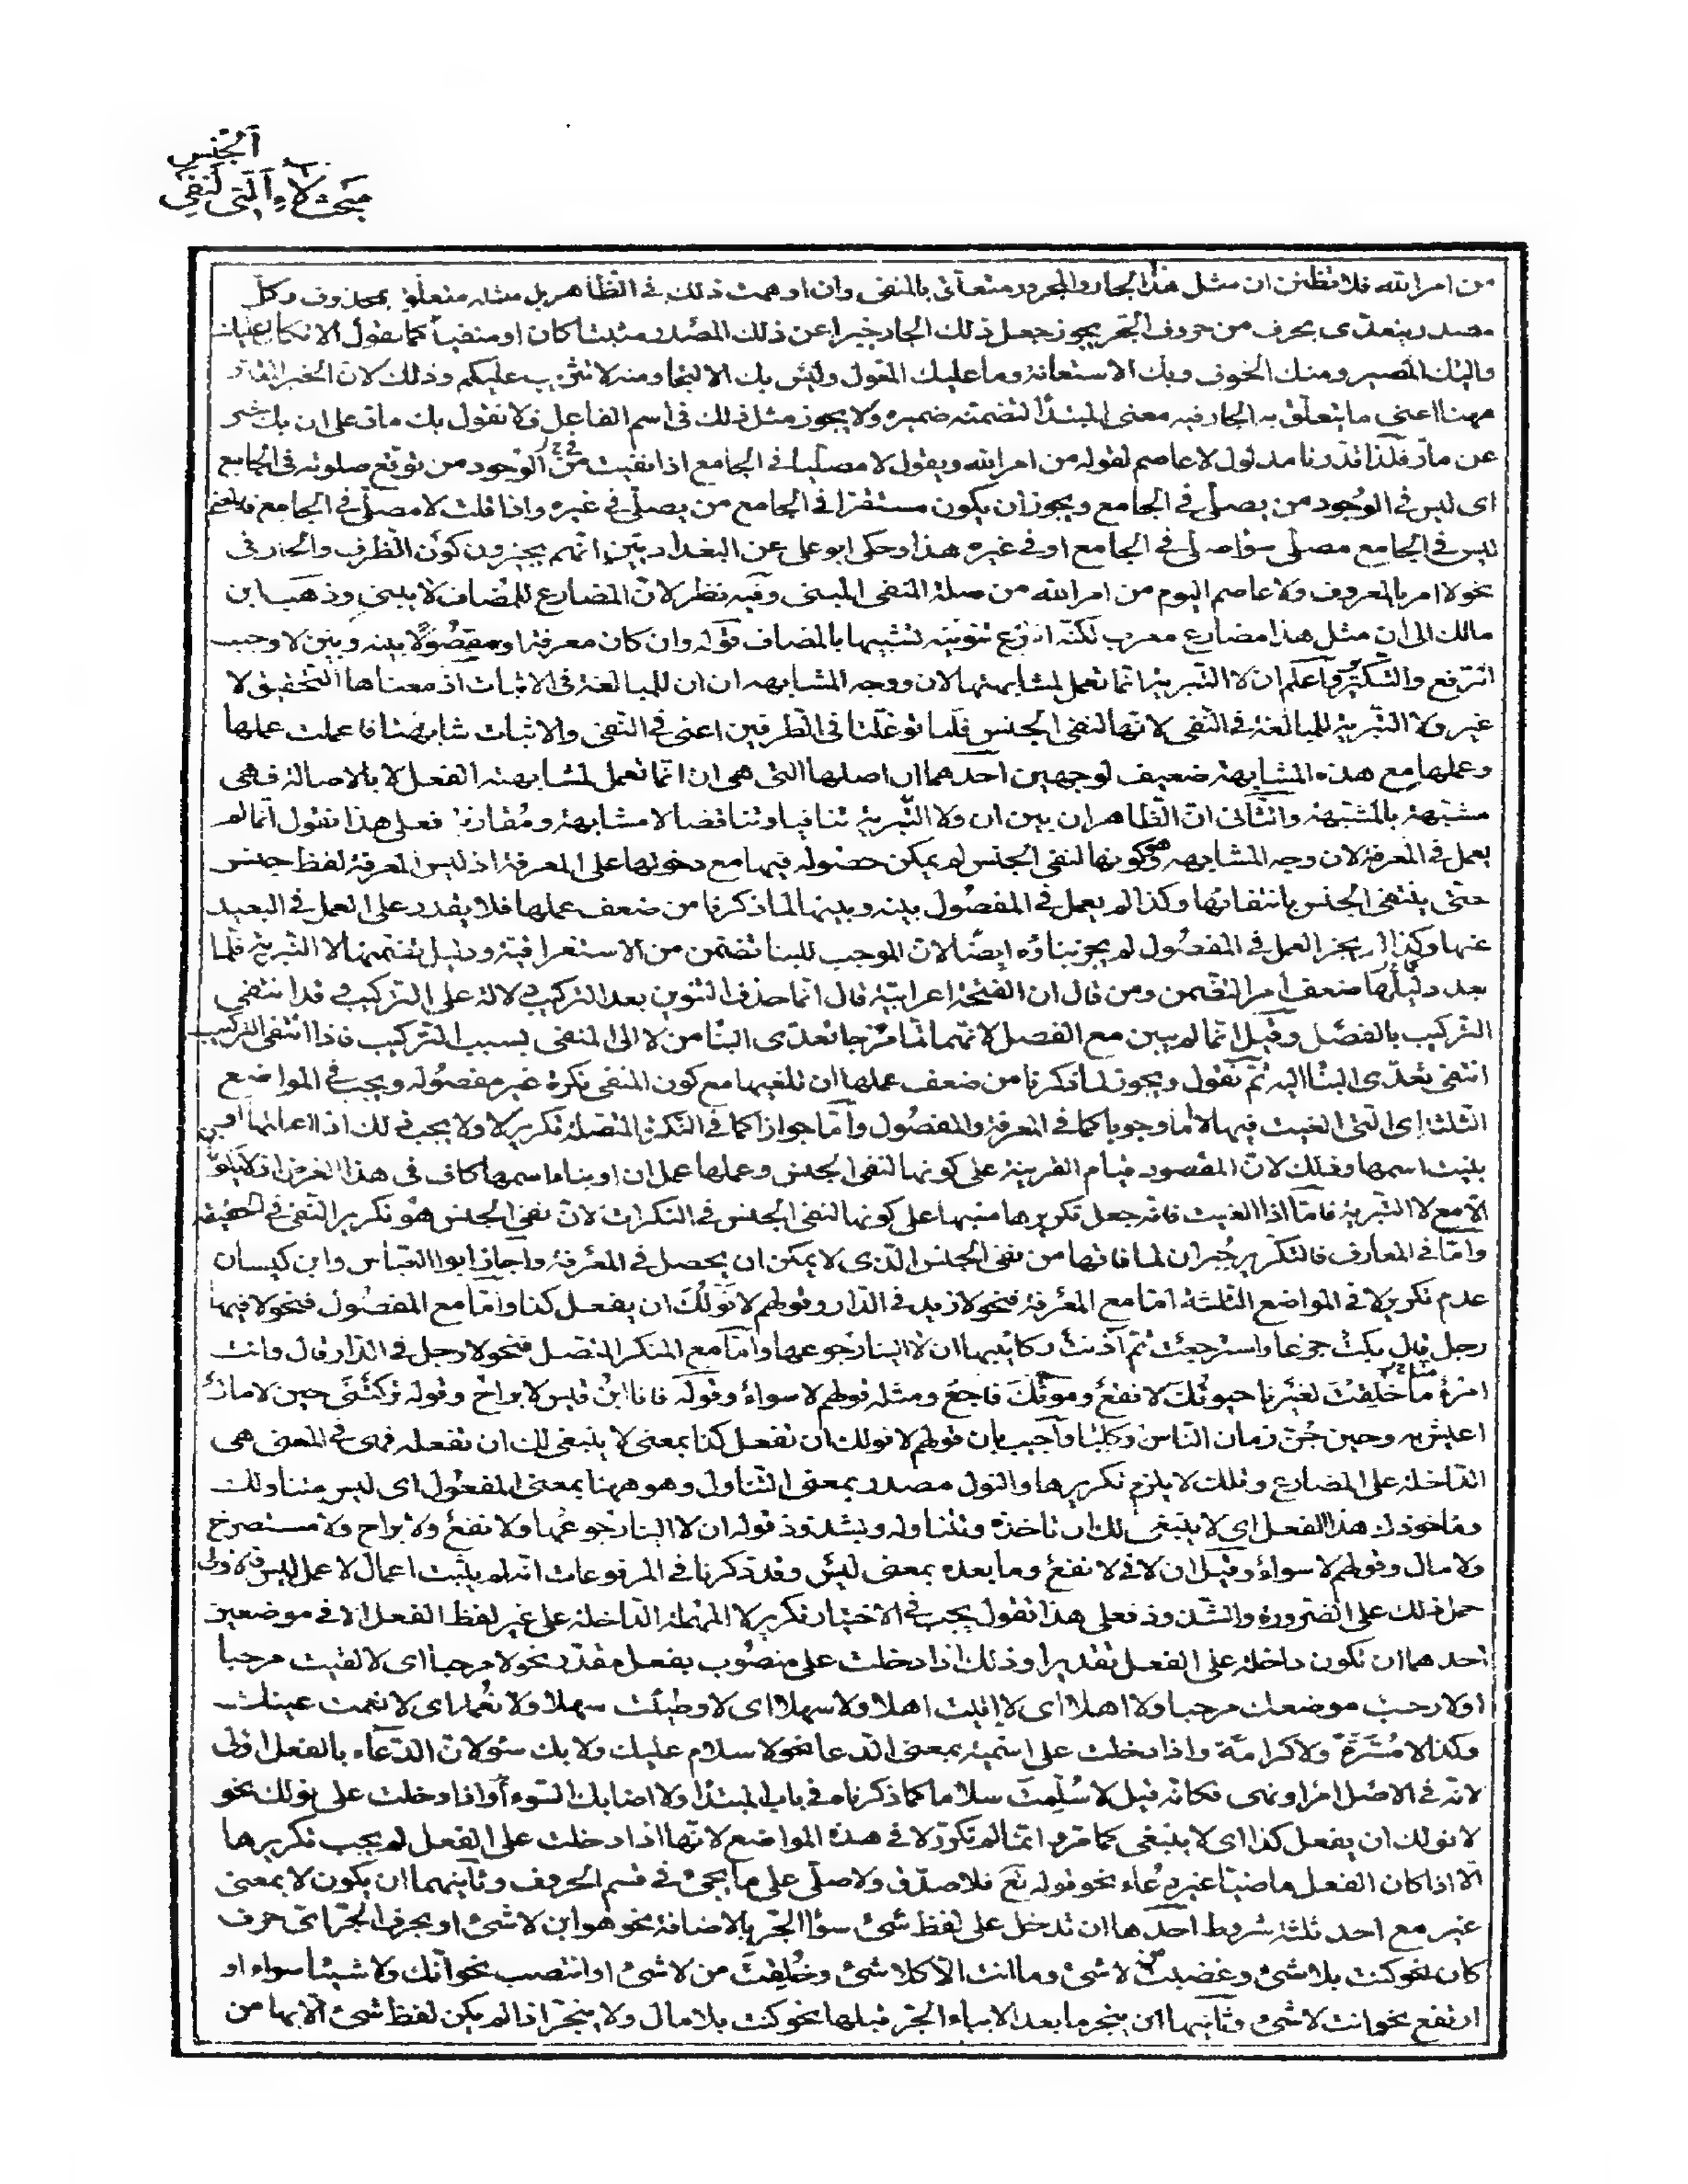 الجنس
مبحث لاء التى لنفى
من امر الله فلا تظنن ان مثل هذا الجار والمجرور متعلق بالمنفى وان اوهمت ذلك فى الظاهر بل مثله متعلق بمحذوف وكل
مصدر يتعدى بحرف من حروف الجر يجوز جعل ذلك الجار خبرا عن ذلك المصدر مثبتا كان او منفيا كما تقول الاتكال عليك
واليك المصير ومنك الخوف وبك الاستعانة وما عليك المعول وليس بك الالتجا ومنه لا تثريب عليكم وذلك لان الخبر المقدر
ههنا اعنى ما يتعلق به الجار فيه معنى المبتدأ لتضمنه ضميره ولا يجوز مثل ذلك فى اسم الفاعل فلا تقول بك مار على ان بك خبر
عن مار فلذا قدرنا مدلول لا عاصم لقوله من امر الله ويقول لا مصليا فى الجامع اذا نفيت من فى الوجود من توقع صلوته فى الجامع
اى ليس فى الوجود من يصلى فى الجامع ويجوز ان يكون مستقرا فى الجامع من يصلى فى غيره واذا قلت لا مصلى فى الجامع فالمعنى
ليس فى الجامع مصلى سواء صلى فى الجامع او فى غيره هذا وحكى ابو على عن البغداديين انهم يجيزون كون الظرف والجار فى
نحو لا امر بالمعروف ولا عاصم اليوم من امر الله من صلة المنفى المبنى وفيه نظر لان المضارع للمضاف لا يبنى وذهب ابن
مالك الى ان مثل هذا مضارع معرب لكنه انتزع تنوينه تشبيها بالمضاف قوله وان كان معرفة او مفصولا بينه وبين لا وجب
الرفع والتكرير واعلم ان لا التبرية انما تعمل لمشابهتها لان ووجه المشابهه ان ان للمبالغة فى الاثبات اذ معناها التحقيق لا
غير ولا التبرية للمبالغة فى النفى لانها لنفى الجنس فلما توغلتا فى الطرفين اعنى فى النفى والاثبات تشابهتا فاعملت عملها
وعملها مع هذه المشابهة ضعيف لوجهين احدهما ان اصلها التى هى ان انما تعمل لمشابهته الفعل لا بالاصالة فهى
مشبهة بالمشبهة والثانى ان الظاهر ان بين ان ولا التبرية تنافيا وتناقضا لا مشابهة ومقاربة فعلى هذا نقول انما لم
يعمل فى المعرفة لان وجه المشابهه وهو كونها لنفى الجنس لم يمكن حصوله فيها مع دخولها على المعرفة اذ ليس المعرفة لفظ جنس
حتى ينتفى الجنس بانتفائها وكذا لم يعمل فى المفصول بينه وبينها لما ذكرنا من ضعف عملها فلا يقدر على العمل فى البعيد
عنها وكذا لم يجز العمل فى المفصول لم يجز بناؤه ايضا لان الموجب للبنا تضمن من الاستغراقية ودليل تضمنها لا التبرية فلما
بعد دليلها ضعف امر التضمن ومن قال ان الفتحة اعرابية قال انما حذف التنوين بعد التركيب دلالة على التركيب وقد انتفى
التركيب بالفصل وقيل انما لم يبن مع الفصل لانهما لما امتزجا تعدى البنا من لا الى المنفى بسبب التركيب فاذا انتفى التركيب
انتفى تعدى البنا اليه ثم نقول ويجوز لما ذكرنا من ضعف عملها ان تلغيها مع كون المنفى نكرة غير مفصوله ويجب فى المواضع
الثلثة اى التى الغيت فيها لا اما وجوبا كما فى المعرفة والمفصول واما جوازا كما فى النكرة المتصلة تكرير لا ولا يجب ذلك اذا اعملتها او
بنيت اسمها وذلك لان المقصود قيام القرينة على كونها لنفى الجنس وعملها عمل ان او بناء اسمها كاف فى هذا الغرض اذ لا يكون
الا مع لا التبرية فاما اذا الغيت فانه جعل تكريرها منبها على كونها لنفى الجنس فى النكرات لان نفى الجنس هو تكرير النفى فى الحقيقة
واما فى المعارف فالتكرير جبران لما فاتها من نفى الجنس الذى لا يمكن ان يحصل فى المعرفة واجاز ابو العباس وابن كيسان
عدم تكرير لا فى المواضع الثلثة اما مع المعرفة فنحو لا زيد فى الدار وقولهم لا نولك ان يفعل كذا واما مع المفصول فنحو لا فيها
رجل قيل بكت جزعا واسترجعت ثم آذنت ركائبها ان لا الينا رجوعها واما مع المنكر المتصل فنحو لا رجل فى الدار قال وانت
امرؤ منا خلقت لغيرنا حيوتك لا نفع وموتك فاجع ومثله قولهم لا سواء وقوله فانا ابن قيس لا براح وقوله تركتنى حين لا مال
اعيش به وحين جن زمان الناس وكلبا واجيب بان قولهم لا نولك ان تفعل كذا بمعنى لا ينبغى لك ان تفعله فهى فى المعنى هى
الداخلة على المضارع وتلك لا يلزم تكريرها والنول مصدر بمعنى التناول وهو ههنا بمعنى المفعول اى ليس متناولك
وماخوذك هذا الفعل اى لا ينبغى لك ان تاخذه وتتناوله وبشذوذ قوله ان لا الينا رجوعها ولا نفع ولا براح ولا مستصرخ
ولا مال وقولهم لا سواء وقيل ان لا فى لا نفع وما بعده بمعنى ليس وقد ذكرنا فى المرفوعات انه لم يثبت اعمال لا عمل ليس فالاولى
حمل ذلك على الضرورة والشذوذ فعلى هذا نقول يجب فى الاختيار تكرير لا المهملة الداخلة على غير لفظ الفعل الا فى موضعين
احدهما ان تكون داخلة على الفعل تقديرا وذلك اذا دخلت على منصوب بفعل مقدر نحو لا مرحبا اى لا لقيت مرحبا
او لا رحب موضعك مرحبا ولا اهلا اى لا اتيت اهلا ولا سهلا اى لا وطيت سهلا ولا نعما اى لا نعمت عينك
وكذا لا مسرة ولا كرامة واذا دخلت على اسمية بمعنى الدعا نحو لا سلام عليك ولا بك سو لان الدعاء بالفعل اولى
لانه فى الاصل امر او نهى فكانه قيل لا سلمت سلاما كما ذكرناه فى باب المبتدأ ولا اصابك السوء واذا دخلت على نولك نحو
لا نولك ان يفعل كذا اى لا ينبغى كما مر وانما لم تكرر لا فى هذه المواضع لانها اذا دخلت على الفعل لم يجب تكريرها
الا اذا كان الفعل ماضيا غير دعاء نحو قوله تع فلا صدق ولا صلى على ما يجئ فى قسم الحروف وثانيهما ان يكون لا بمعنى
غير مع احد ثلثة شروط احدها ان تدخل على لفظ شئ سواء الجر بالاضافة نحو هو ابن لا شئ او بحرف الجر اى حرف
كان نحو كنت بلا شئ وغضبت من لا شئ وما انت الا كلا شئ وخلقت من لا شئ او انتصب نحو انك ولا شيئا سواء او
ارتفع نحو انت لا شئ وثانيها ان ينجر ما بعد لا بباء الجر قبلها نحو كنت بلا مال ولا ينجر اذا لم يكن لفظ شئ الا بها من